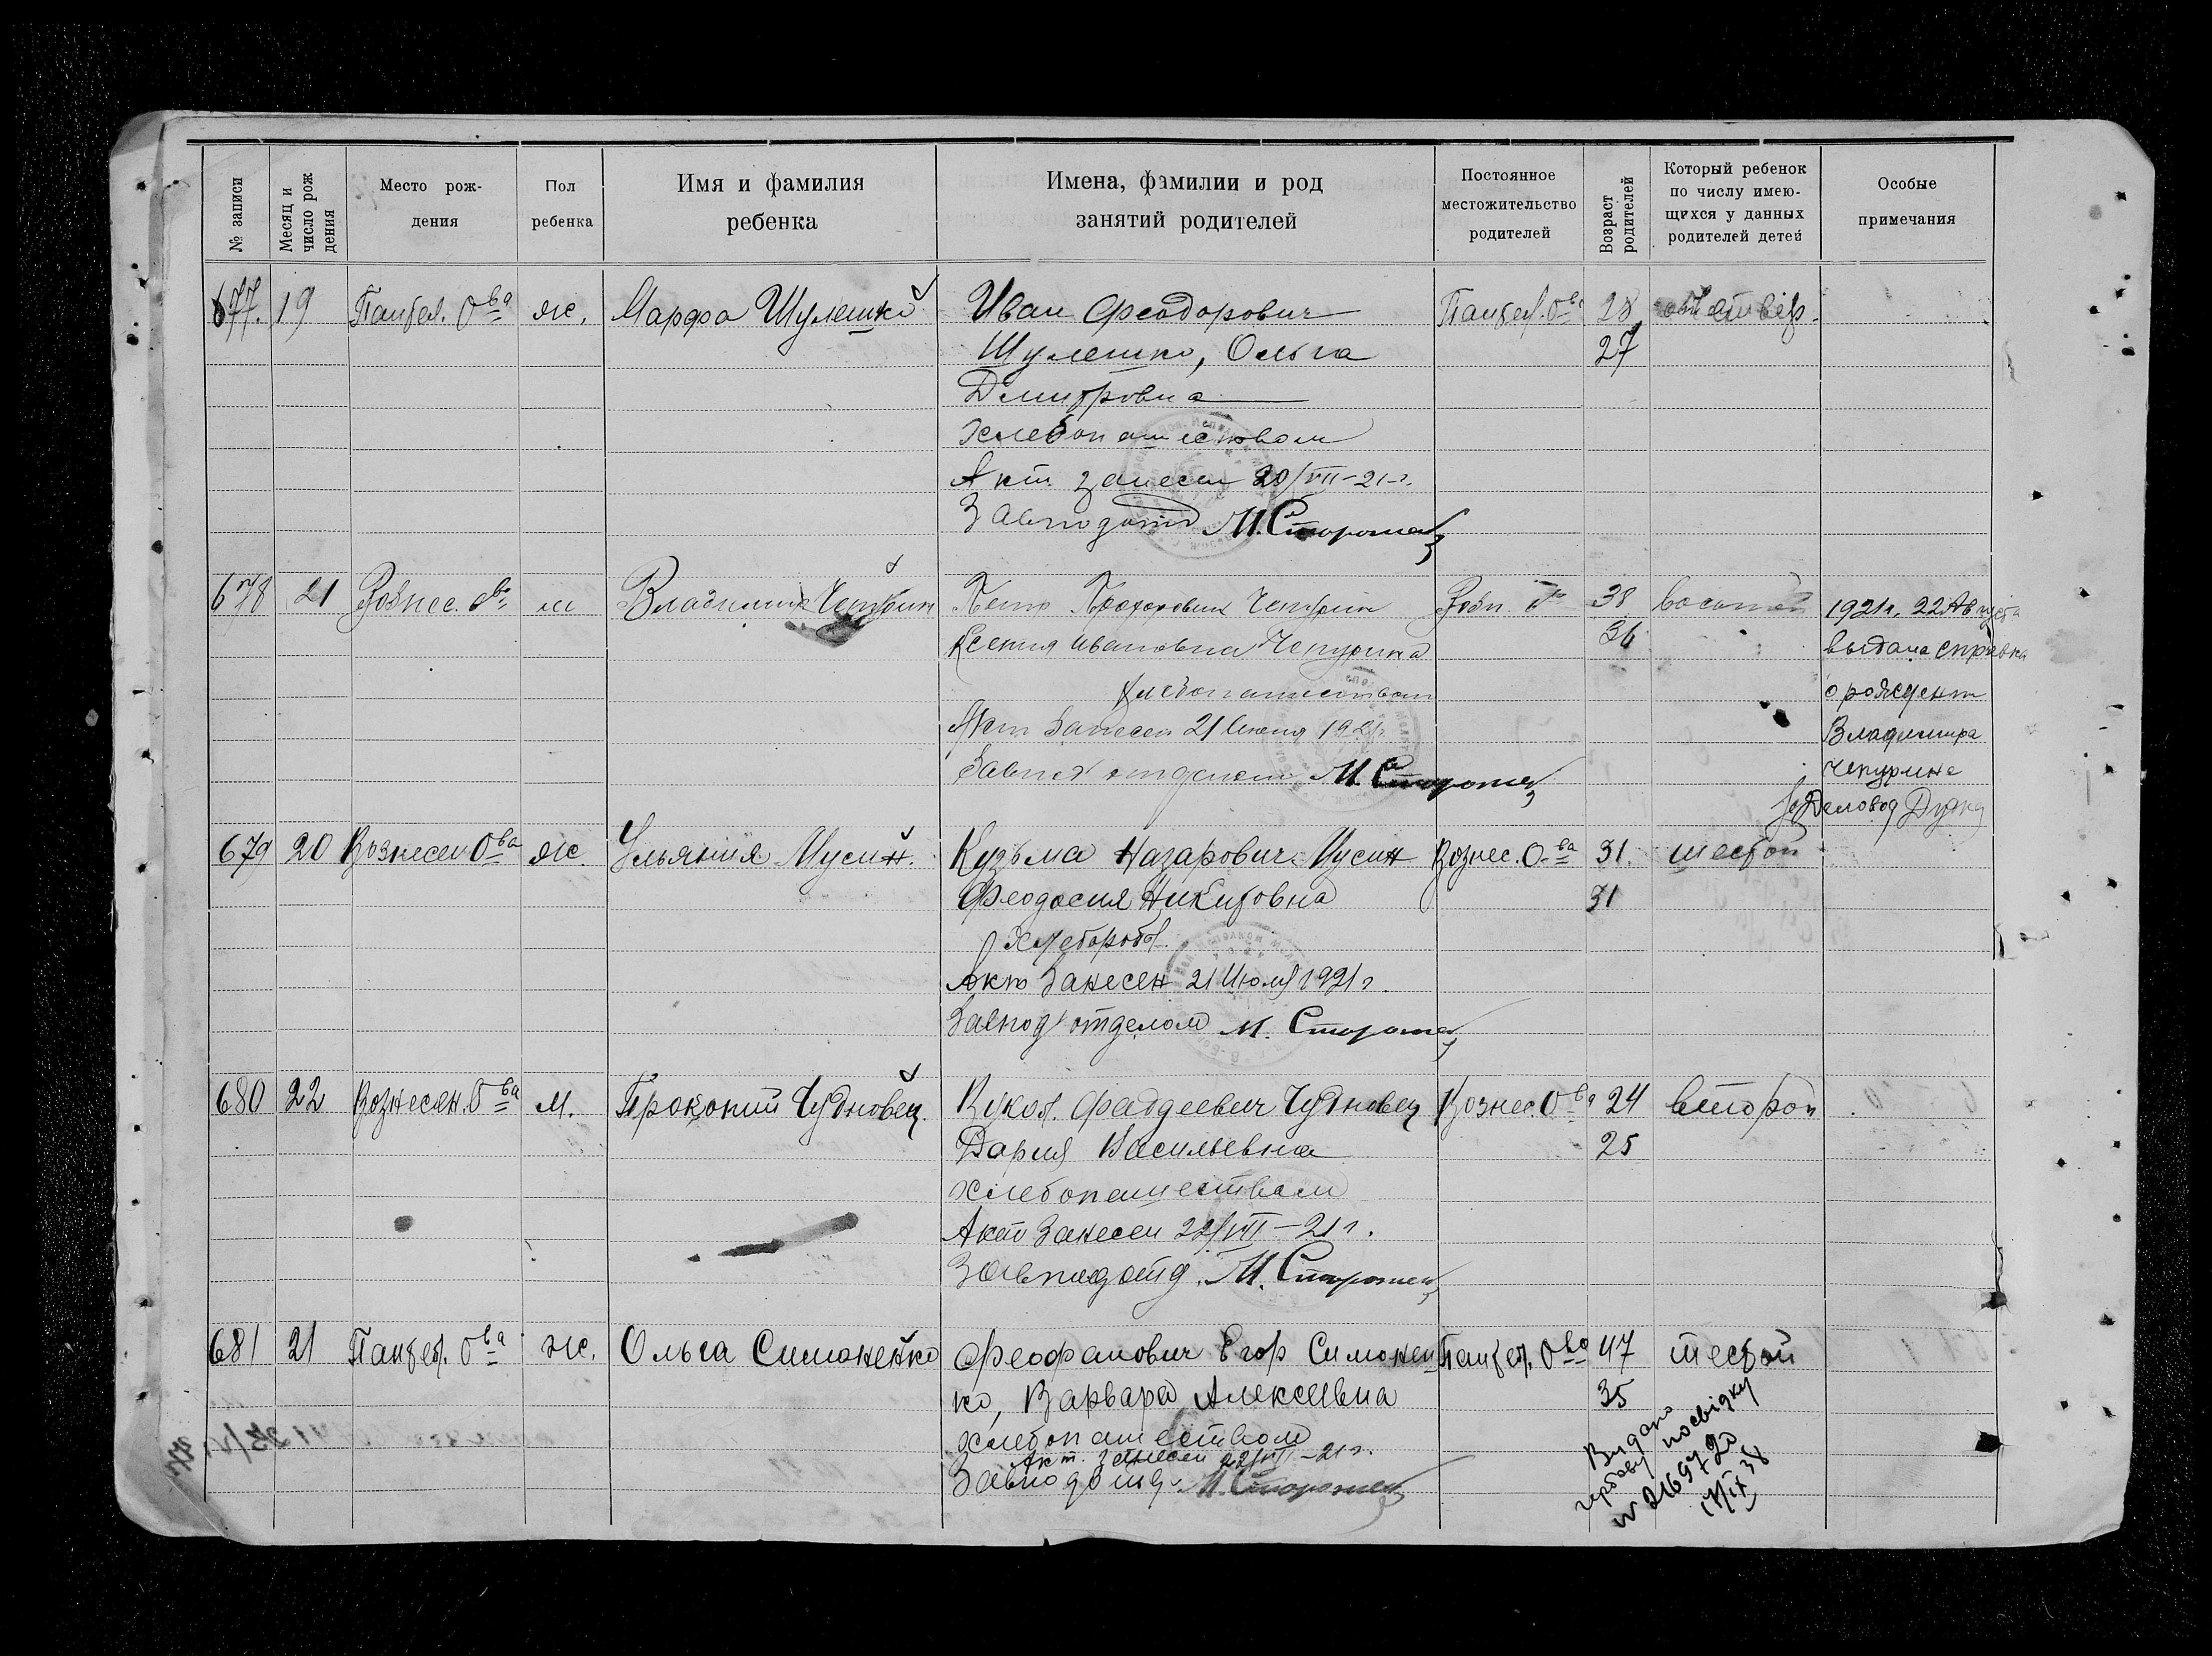 № записи
Месяц и число рождения
Место рождения
Пол ребенка
Имя и фамилия ребенка
Имена, фамилии и род занятий родителей
Постоянное местожительство родителей
Возраст родителей
Который ребенок по числу имеющихся у данных родителей детей
Особые примечания
677. 19 Панфел. О-ва ж. Марфа Шулешко Иван Феодорович Панфел. О-ва 28
Шулешко, Ольга 27
Дмитровна
хлебопашеством
Акт занесен 20/VII-21 г.
Завподотд М. Сторожен
678 21 Вознес. О-ва м Владимир Чепурин Петр Чепурин Возн. 38 восьмой 1921 г. 22 Августа
Ксения Ивановна Чепурина 36 выдана справка
хлебопашеством о рожден
Акт занесен 21 Июля 1921 г. Владимира
Завпод отделом М. Сторожен Чепурина
Деловод
679 20 Вознесен О-ва ж Ульяния Мусин. Кузьма Назарович Мусин Вознес. О-ва 31. шестой
Феодосия Никитовна 31
хлебороб
Акт Занесен 21 Июля 1921 г.
Завпод отделом М. Сторожен
680 22 Вознесен. О-ва м. Прокопий Чудновец Вукол. Фаддеевич Чудновец Вознес. О-ва 24 второй
Дария Васильевна 25
хлебопашеством
Акт Занесен 22/VII-21 г.
Завподотд. М. Сторожен
681 21 Панфел. О-ва ж. Ольга Симоненко Феофанович Егор Симонен Панфел. О-ва 47 шестой
ко, Варвара Алексевна 35
хлебопашеством
Акт. занесен 22/VII-21 г.
Завподотд. М. Сторожен
Видано
посвідку